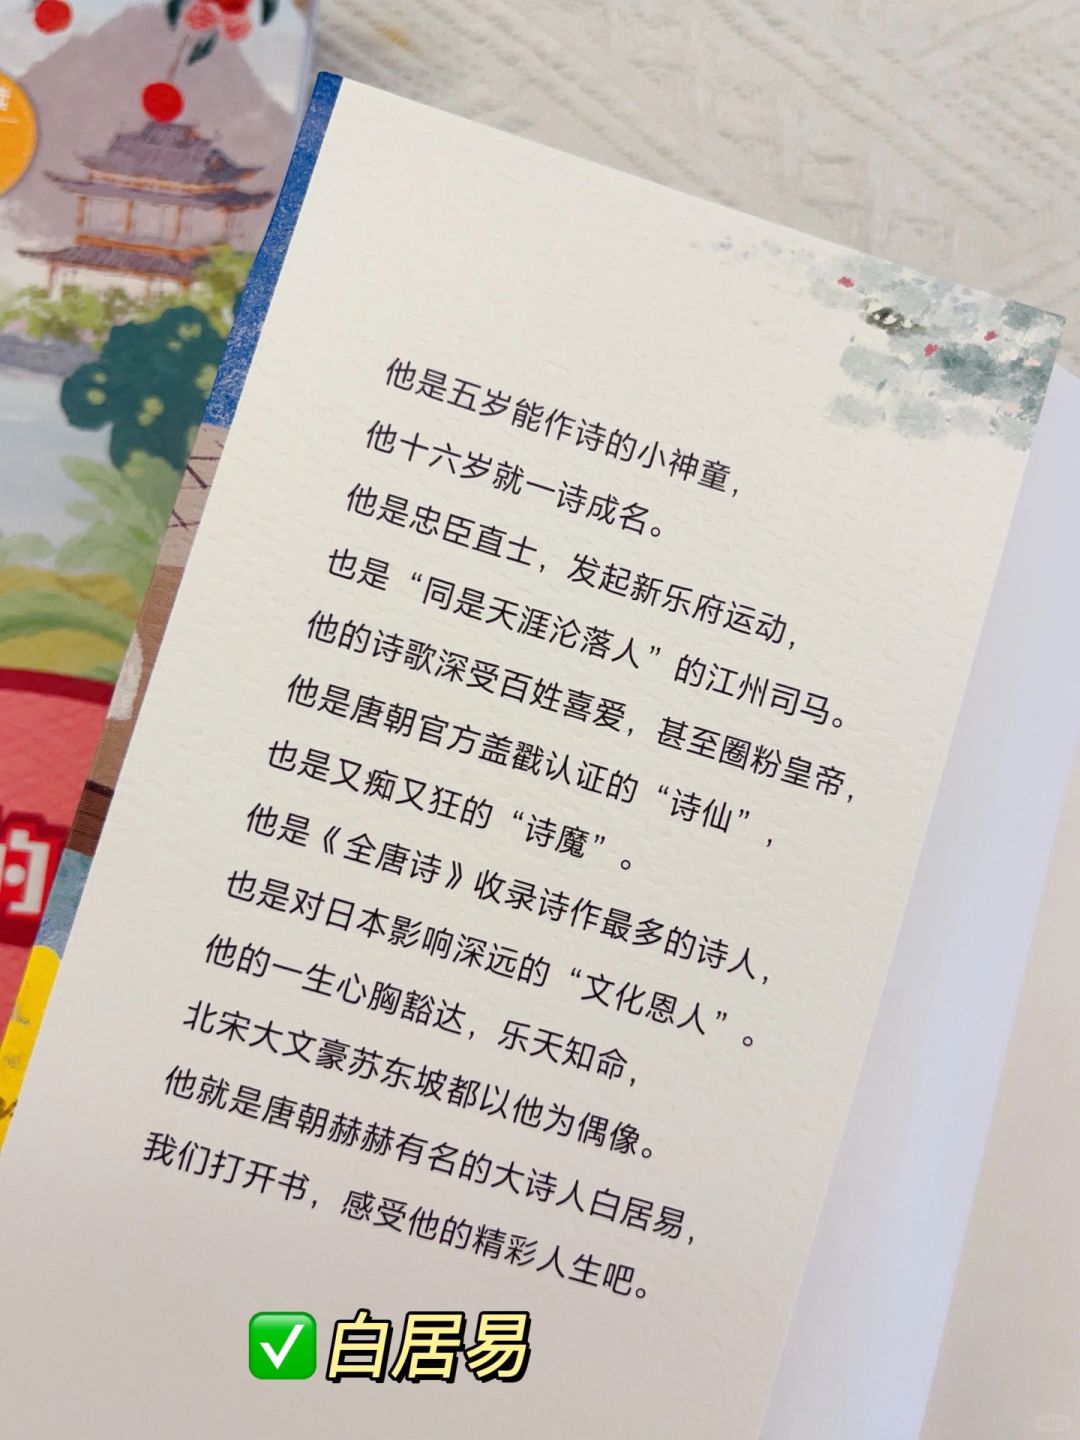 他是五岁能作诗的小神童，
他十六岁就一诗成名。
他是忠臣直士，发起新乐府运动，
也是“同是天涯沦落人”的江州司马。
他的诗歌深受百姓喜爱，甚至圈粉皇帝，
他是唐朝官方盖戳认证的“诗仙”，
也是又痴又狂的“诗魔”。
他是《全唐诗》收录诗作最多的诗人，
也是对日本影响深远的“文化恩人”。
他的一生心胸豁达，乐天知命，
北宋大文豪苏东坡都以他为偶像。
他就是唐朝赫赫有名的大诗人白居易，
我们打开书，感受他的精彩人生吧。
的
✅白居易